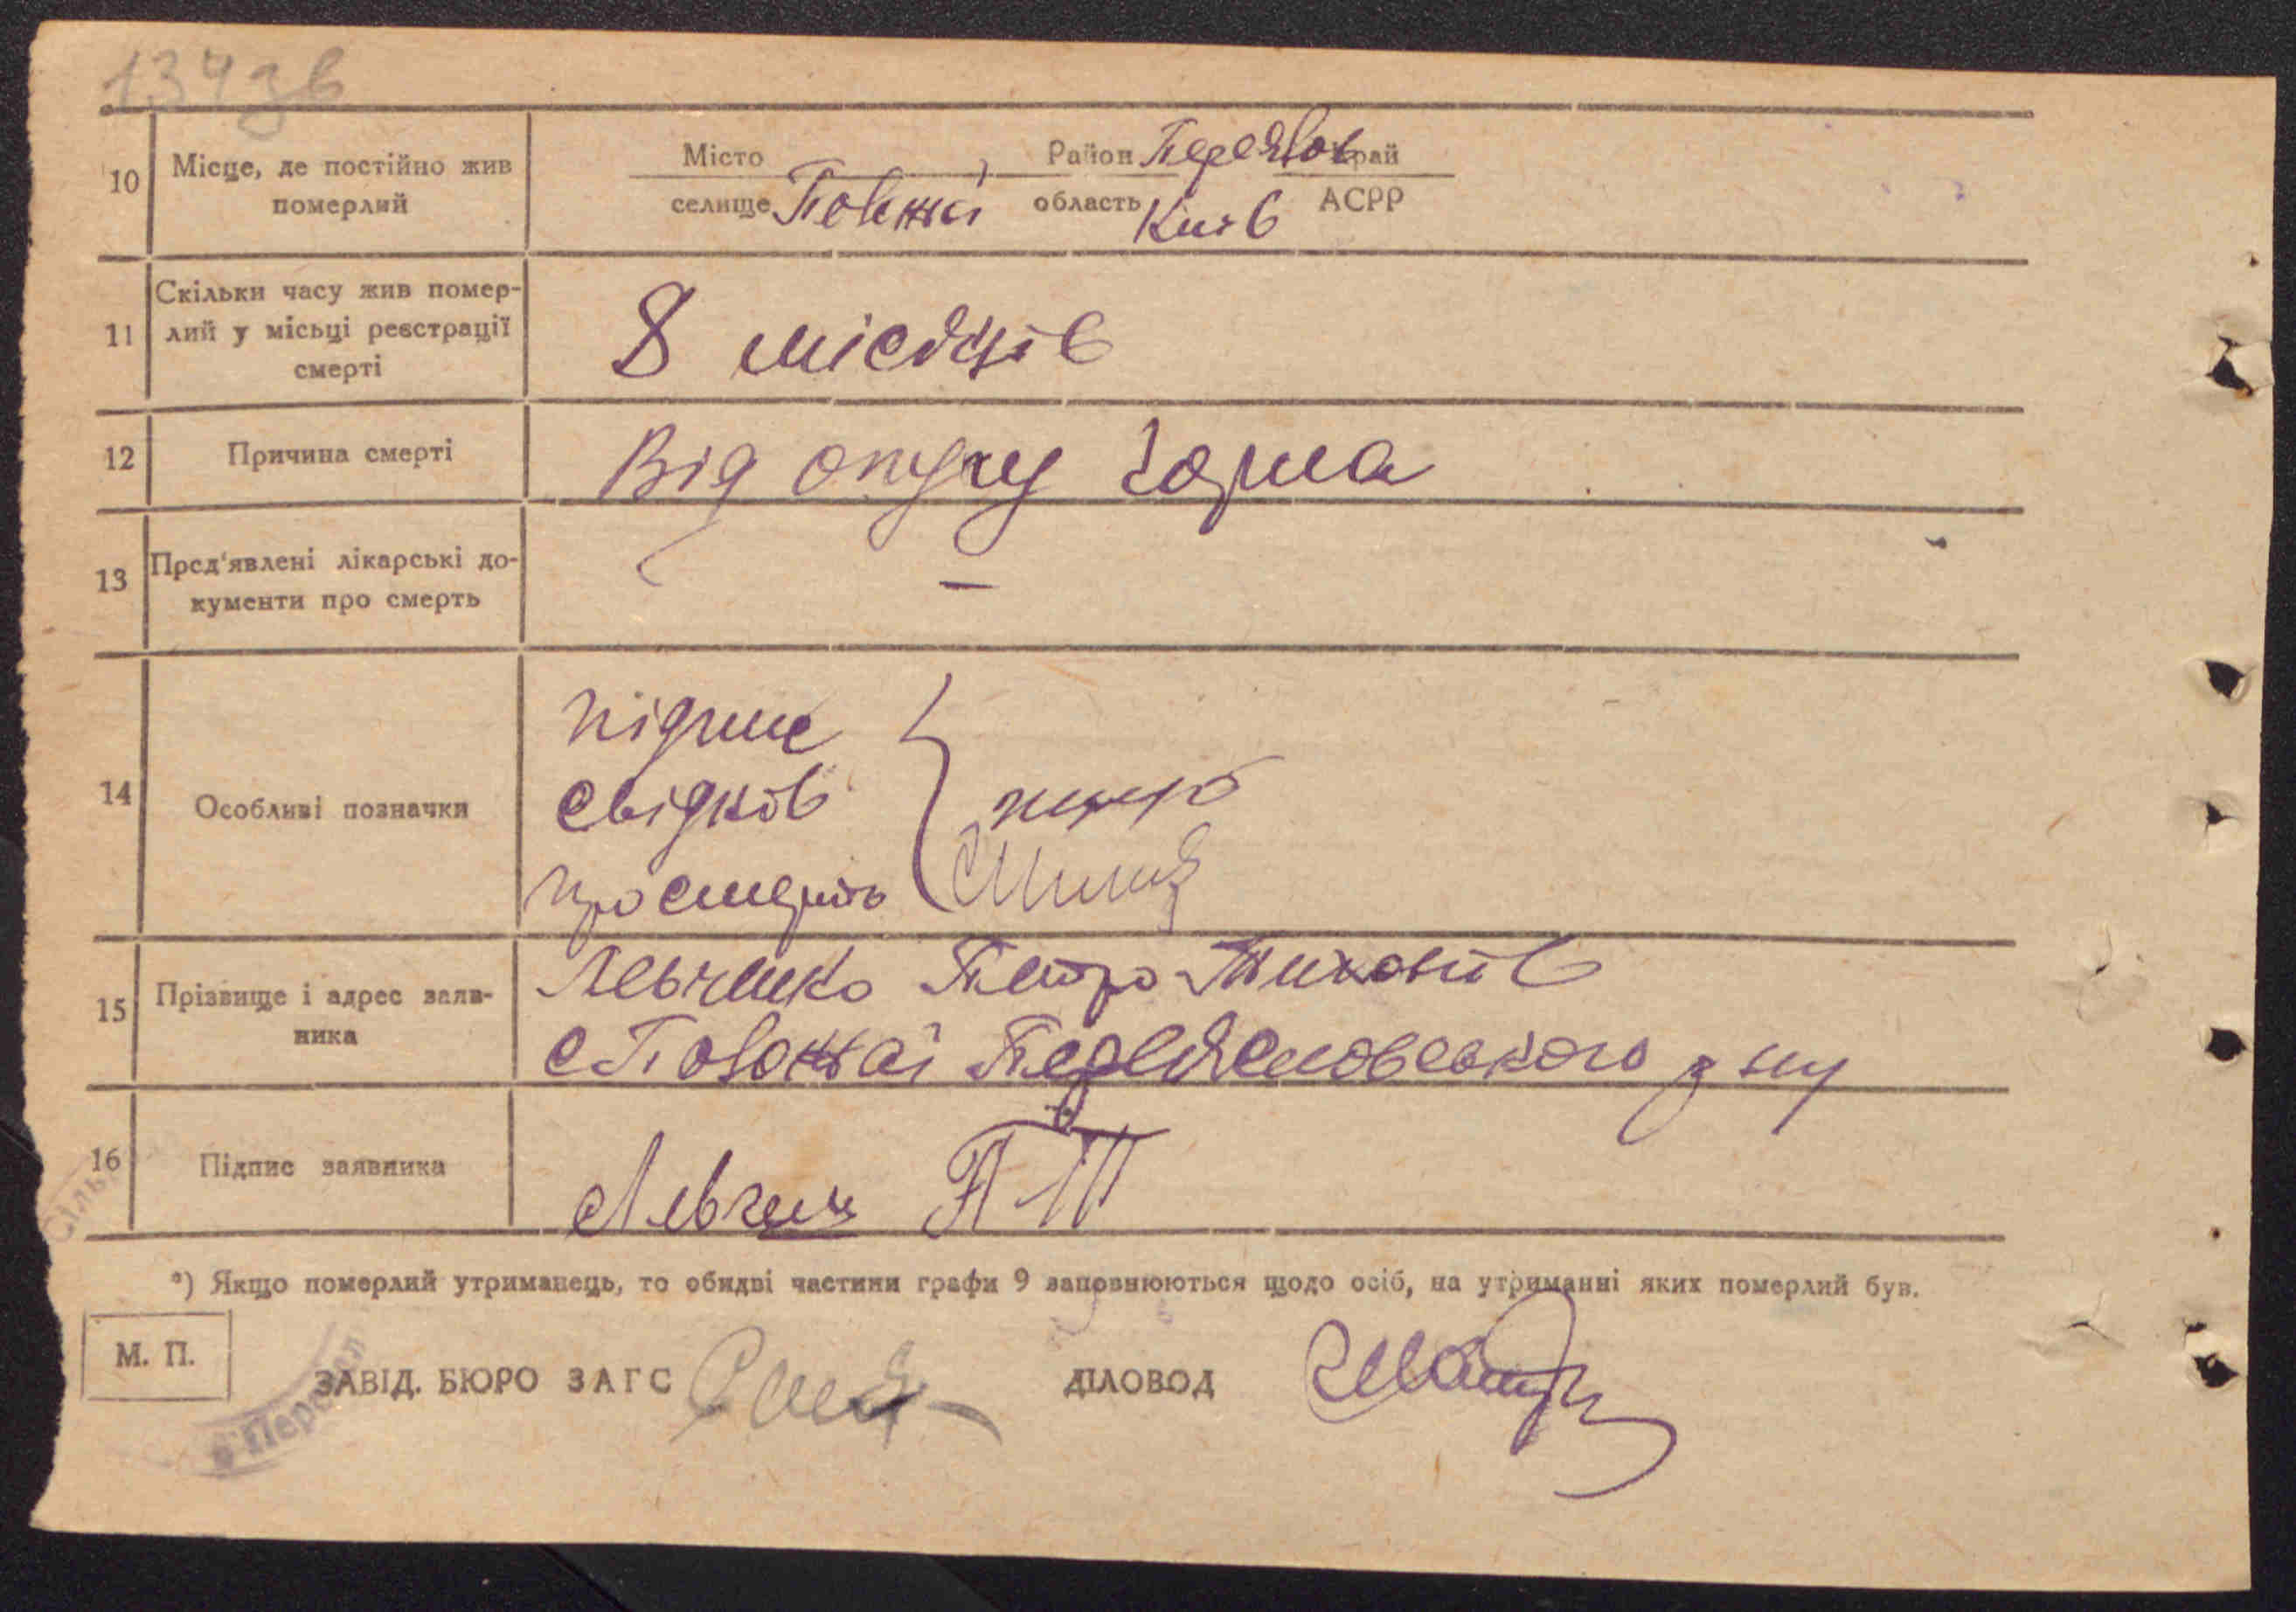 134 зв
10
Місце, де постійно жив
померлий
Місто
селище Повожаї
Район Переяслов край
область Київ АСРР
11
Скільки часу жив помер-
лий у місьці реєстрації
смерті
8 місяців
12
Причина смерті
Від опуху горла
13
Пред'явлені лікарські до-
кументи про смерть
—
14
Особливі позначки
підпис
свідків
про смерть
15
Прізвище і адрес заяв-
ника
Левченко Петро Тихонов
с Повожаї Переясловського р ну
16
Підпис заявника
Левчен П Т
*) Якщо померлий утриманець, то обидві частини графи 9 заповнюються щодо осіб, на утриманні яких померлий був.
М. П.
ЗАВІД. БЮРО ЗАГС
ДІЛОВОД